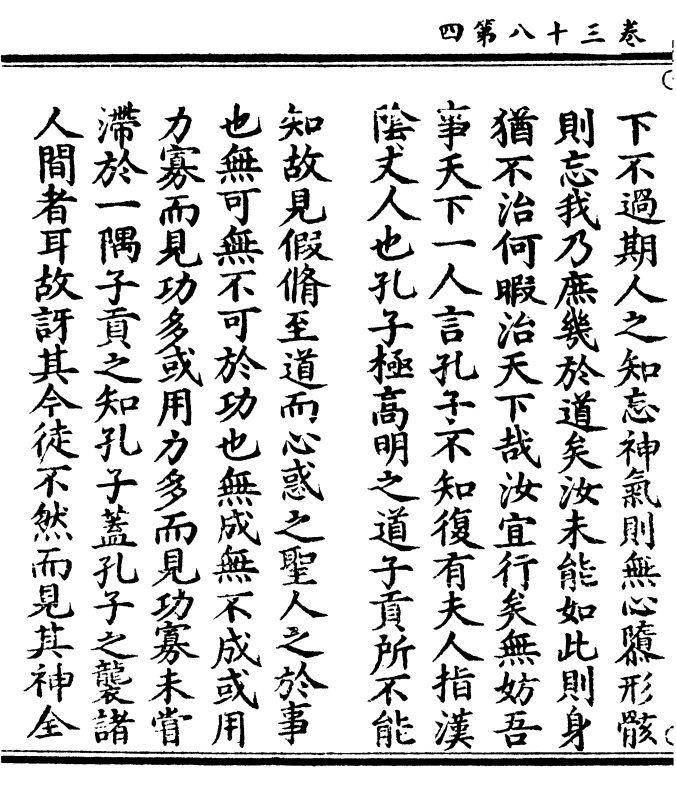 卷三十八第四
下不過期人之知忘神氣則無心隳形骸
則忘我乃庶幾於道矣汝未能如此則身
猶不治何暇治天下哉汝宜行矣無妨吾
事天下一人言孔子不知復有夫人指漢
陰丈人也孔子極高明之道子貢所不能
知故見假脩至道而心惑之聖人之於事
也無可無不可於功也無成無不成或用
力寡而見功多或用力多而見功寡未嘗
滯於一隅子貢之知孔子蓋孔子之襲諸
人間者耳故訝其今徒不然而見其神全